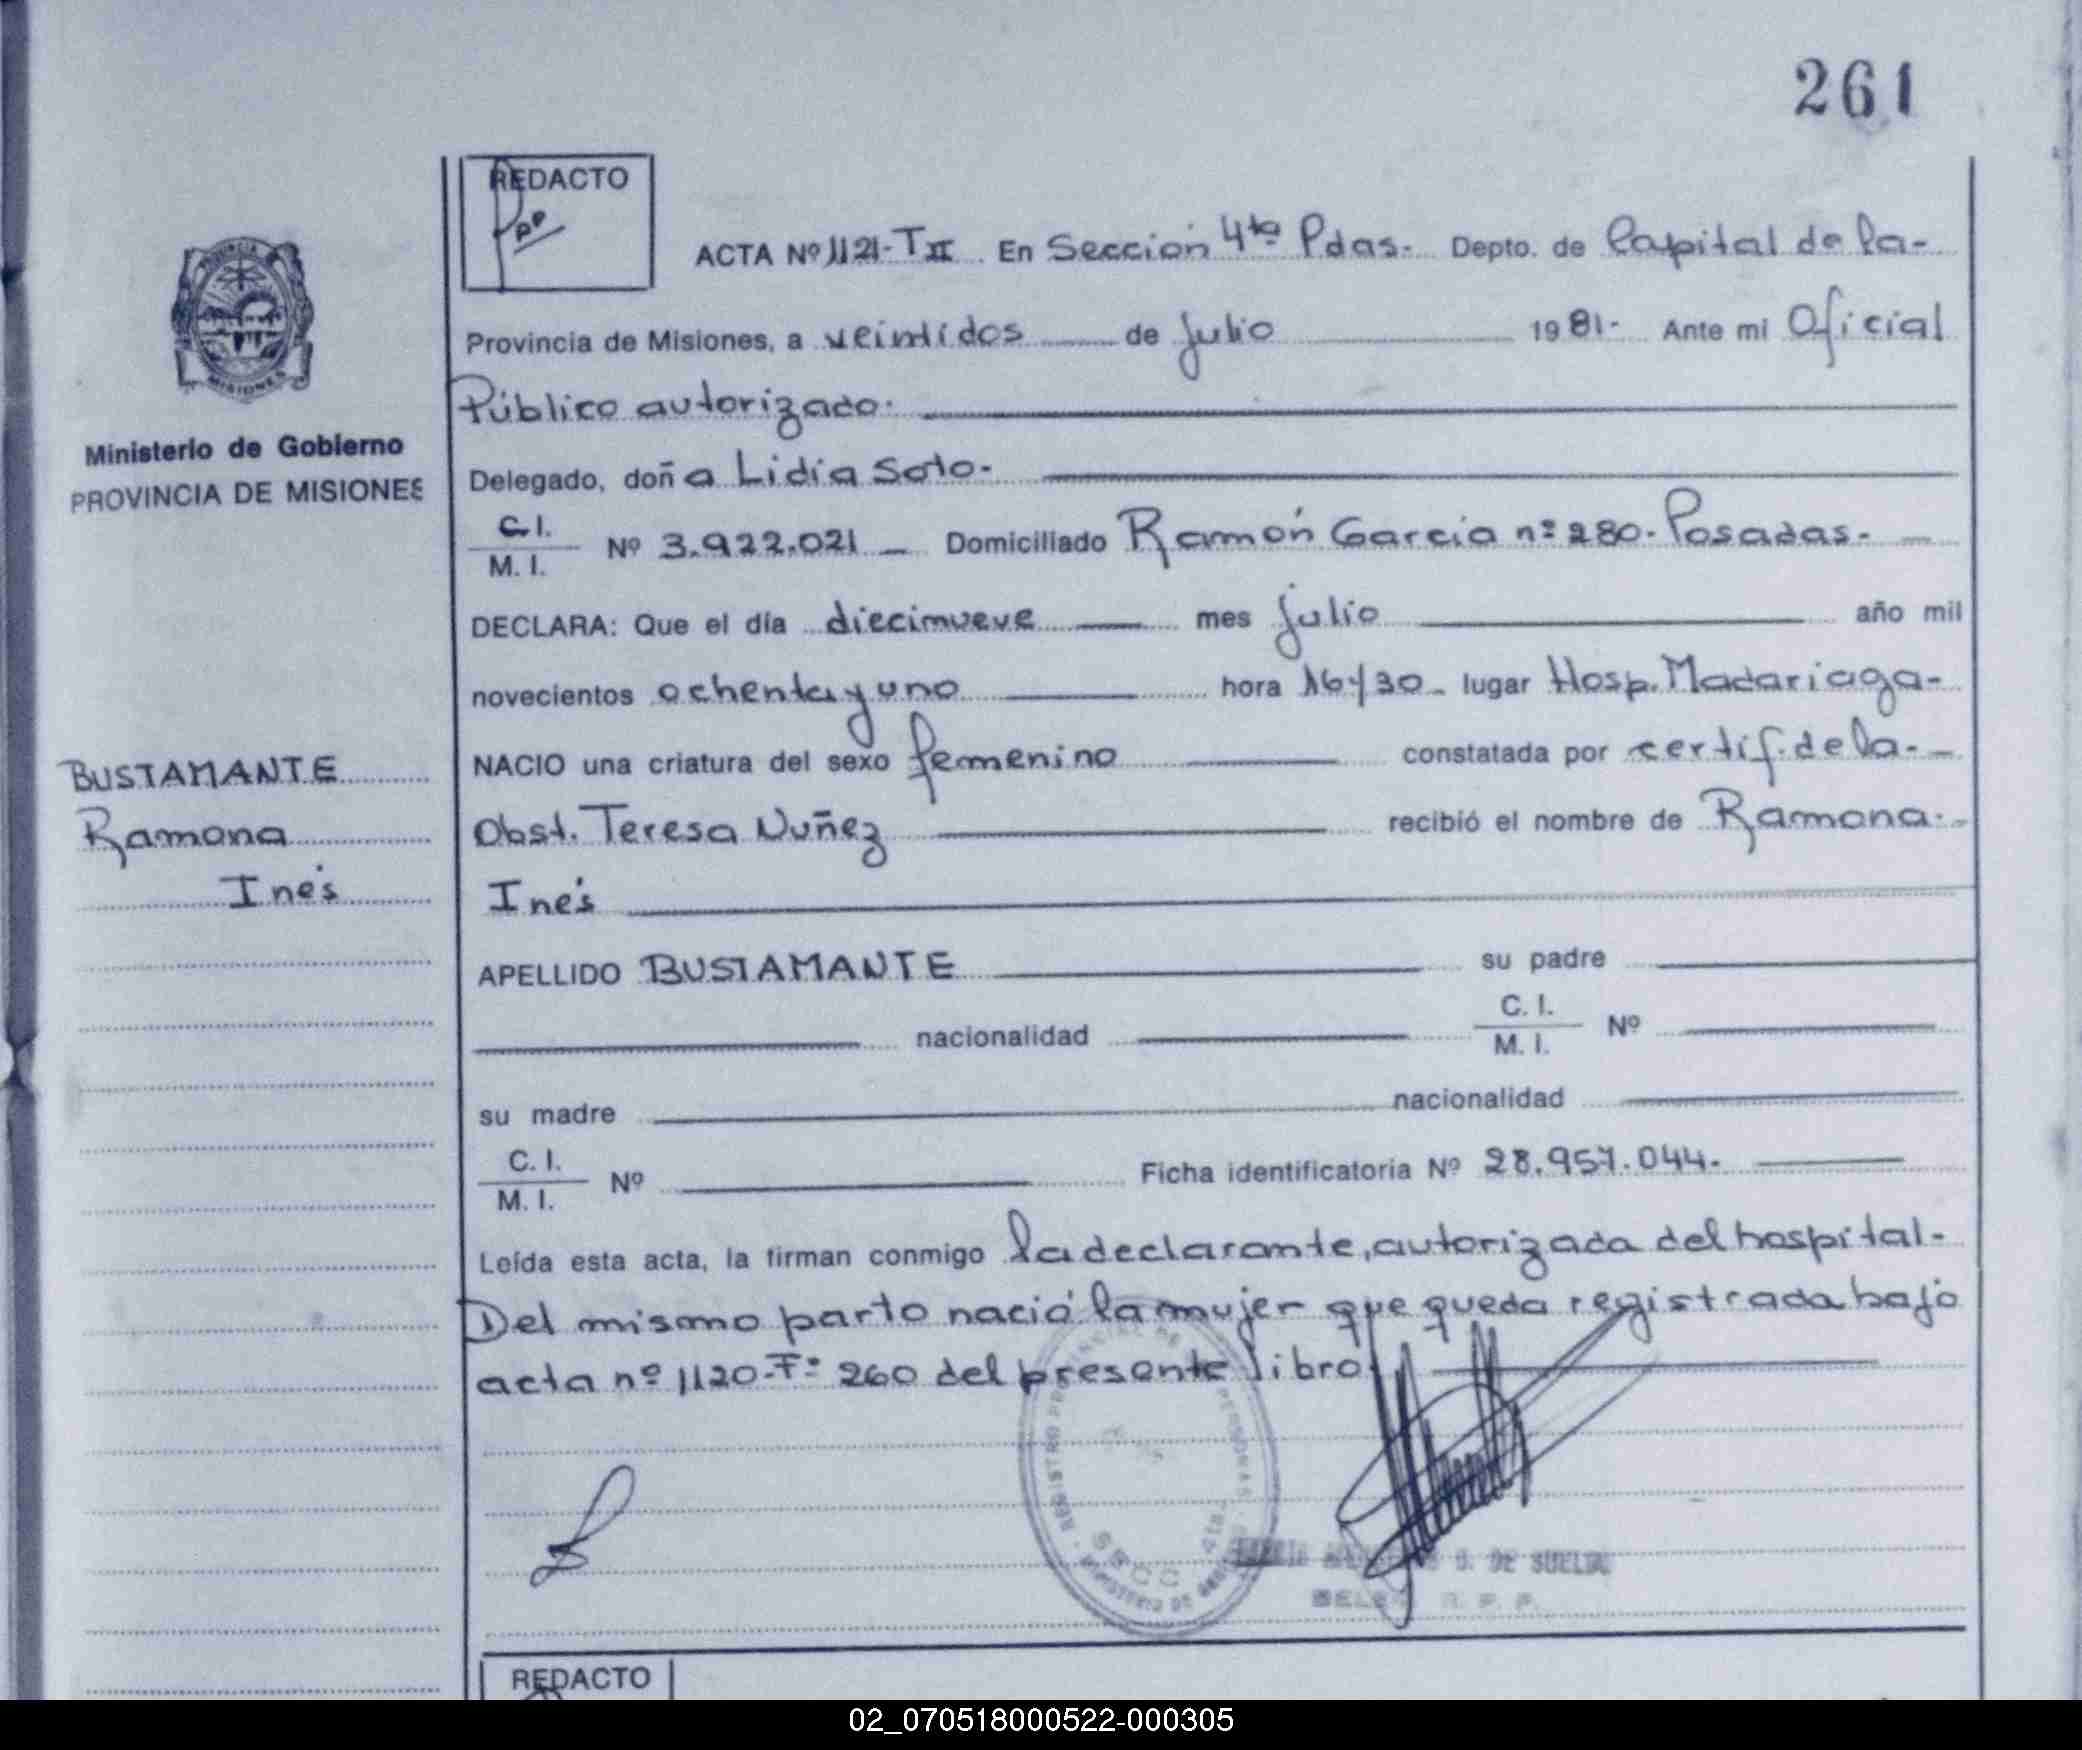 261
REDACTO
ACTA Nº 1121-TII. En Sección 4ta Pdas.- Depto. de Capital de la-
Provincia de Misiones, a veintidos de Julio 1981.- Ante mi Oficial
Público autorizado.
Delegado, doña Lidia Soto.-
C.I.
M. I.
Nº 3.922.021 Domiciliado Ramón García nº 280. Posadas.-
DECLARA: Que el día diecinueve mes julio año mil
novecientos ochenta y uno hora 16y30 lugar Hosp. Madariaga-
NACIO una criatura del sexo femenino constatada por certif. de la.-
Obst. Teresa Nuñez recibió el nombre de Ramona.-
Inés
APELLIDO BUSTAMANTE su padre
nacionalidad
C. I.
M. I.
Nº
su madre nacionalidad
C. I.
M. I.
Nº
Ficha identificatoria Nº 28.957.044.
Leída esta acta, la firman conmigo la declarante, autorizada del hospital.-
Del mismo parto nació la mujer que queda registrada bajo
acta nº 1120-Fº 260 del presente libro
SECC 4ta
DE SUELDO
R. P. P.
MISIONES
Ministerio de Gobierno
PROVINCIA DE MISIONES
BUSTAMANTE
Ramona
Inés
REDACTO
02_070518000522-000305